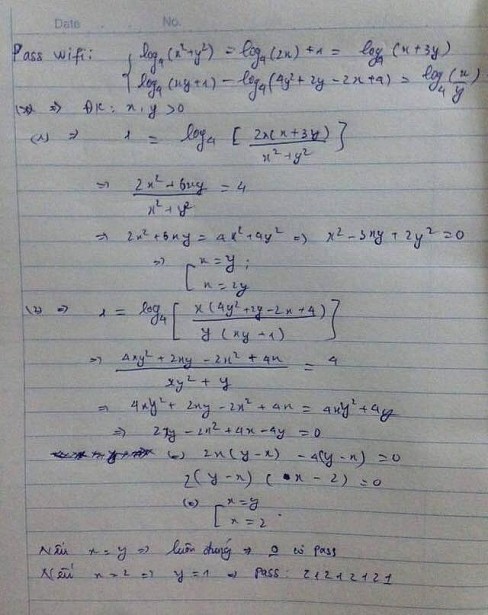 Date No.
Pass wifi: { log₄(x²+y²) = log₄(2x) + 1 = log₄(x+3y)
log₄(xy+1) - log₄(4y²+2y-2x+4) = log₄(x/y)
(*) => ĐK: x, y > 0
(1) => 1 = log₄ [ 2x(x+3y) / x²+y² ]
=> 2x²+6xy / x²+y² = 4
=> 2x²+6xy = 4x²+4y² => x²-3xy+2y² = 0
=> [ x = y ;
x = 2y
(2) => 1 = log₄ [ x(4y²+2y-2x+4) / y(xy+1) ]
=> 4xy²+2xy-2x²+4x / xy²+y = 4
=> 4xy²+2xy-2x²+4x = 4xy²+4y
=> 2xy-2x²+4x-4y = 0
(=) 2x(y-x) -4(y-x) = 0
2(y-x)(x-2) = 0
(=) [ x = y
x = 2 .
Nếu x = y => luôn đúng => 0 có pass
Nếu x = 2 => y = 1 => pass: 21212121